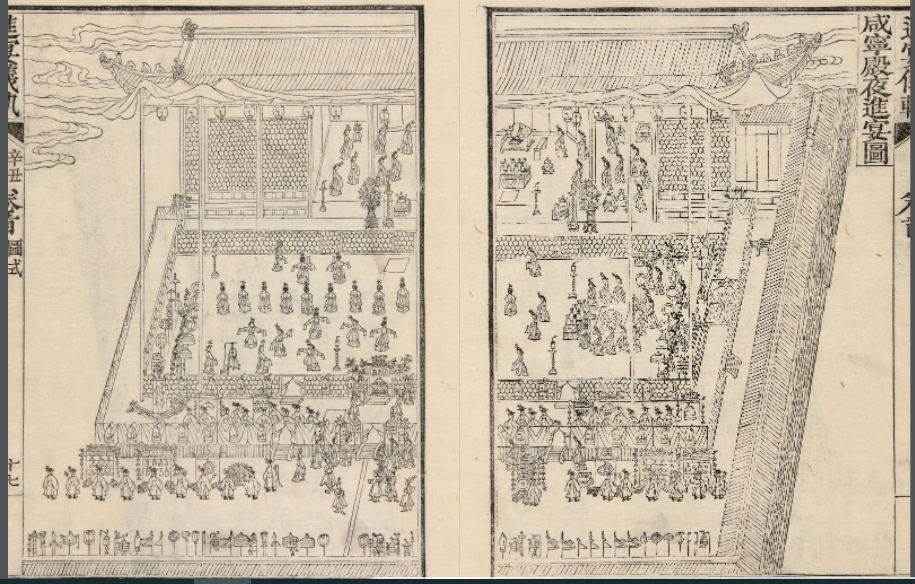 咸寧殿夜進宴圖
進宴儀軌
辛丑
卷首
圖式
十七